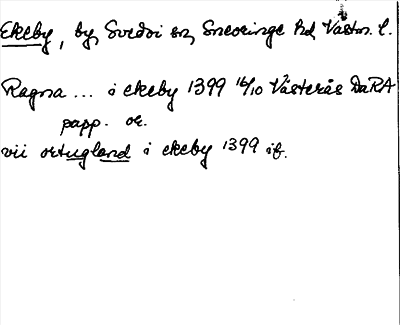 Ekeby, by, Svedvi sn, Snevringe hd, Västm. l.
Ragna ... i ekeby 1399 16/10 Västerås DaRA
papp. or.
vii ortugland i ekeby 1399 ib.